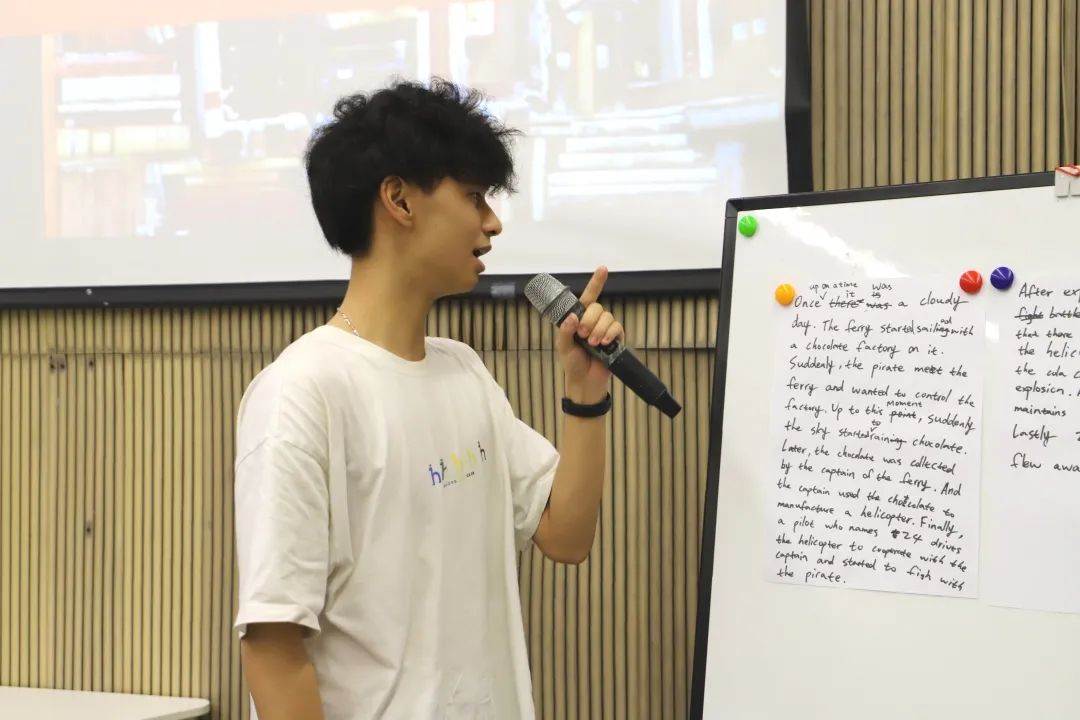 upon a time it was
Once there was is a cloudy
day. The ferry started sailing with
a chocolate factory on it.
Suddenly, the pirate meet the
ferry and wanted to control the
factory. Up to this point, moment suddenly
the sky started to raining chocolate.
Later, the chocolate was collected
by the captain of the ferry. And
the captain used the chocolate to
manufacture a helicopter. Finally,
a pilot who names 24 drives
the helicopter to cooperate with the
captain and started to figh with
the pirate.
After
fight
that there
the
the cola
explosion.
maintains
Lastly
flew